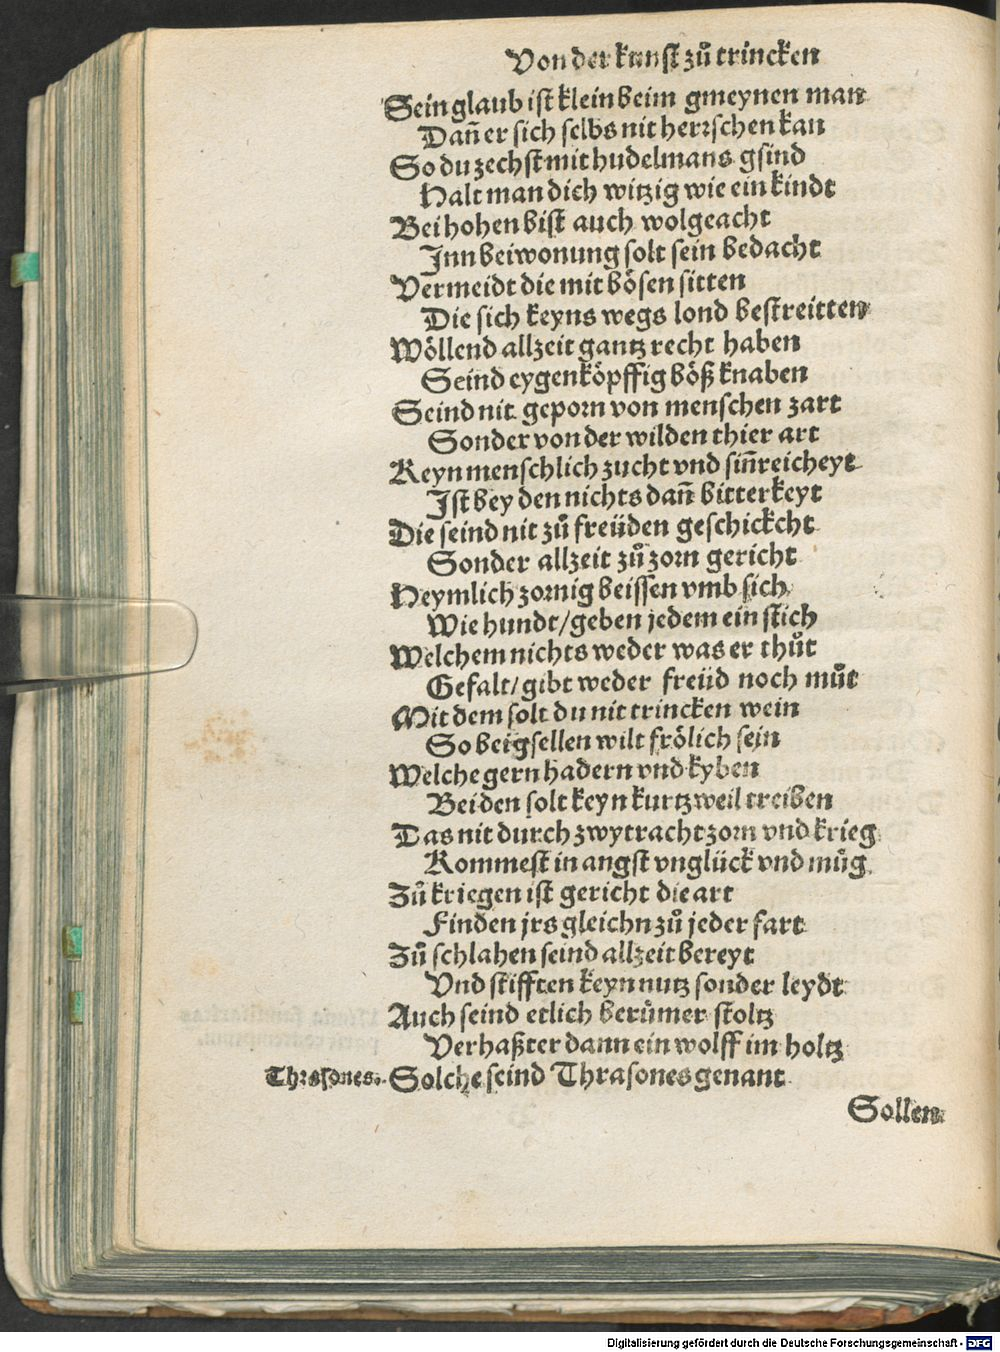 Von der kunst zů trincken
Sein glaub ist klein beim gmeynen man
Dañ er sich selbs nit herrschen kan
So du zechst mit hudelmans gsind
Halt man dich witzig wie ein kindt
Bei hohen bist auch wolgeacht
Inn beiwonung solt sein bedacht
Vermeidt die mit bösen sitten
Die sich keyns wegs lond bestreitten
Wöllend allzeit gantz recht haben
Seind eygenköpffig böß knaben
Seind nit geporn von menschen zart
Sonder von der wilden thier art
Keyn menschlich zucht vnd siñreicheyt
Ist bey den nichts dañ bitterkeyt
Die seind nit zů freüden geschickcht
Sonder allzeit zů zorn gericht
Heymlich zornig beissen vmb sich
Wie hundt/geben jedem ein stich
Welchem nichts weder was er thůt
Gefalt/gibt weder freüd noch můt
Mit dem solt du nit trincken wein
So bei gsellen wilt frölich sein
Welche gern hadern vnd kyben
Bei den solt keyn kurtzweil treiben
Das nit durch zwytracht zorn vnd krieg
Kommest in angst vnglück vnd můg
Zů kriegen ist gericht die art
Finden jrs gleichn zů jeder fart
Zů schlahen seind allzeit bereyt
Vnd stifften keyn nutz sonder leydt
Auch seind etlich berůmer stoltz
Verhaßter dann ein wolff im holtz
Thrasones. Solche seind Thrasones genant
Sollen
Digitalisierung gefördert durch die Deutsche Forschungsgemeinschaft - DFG